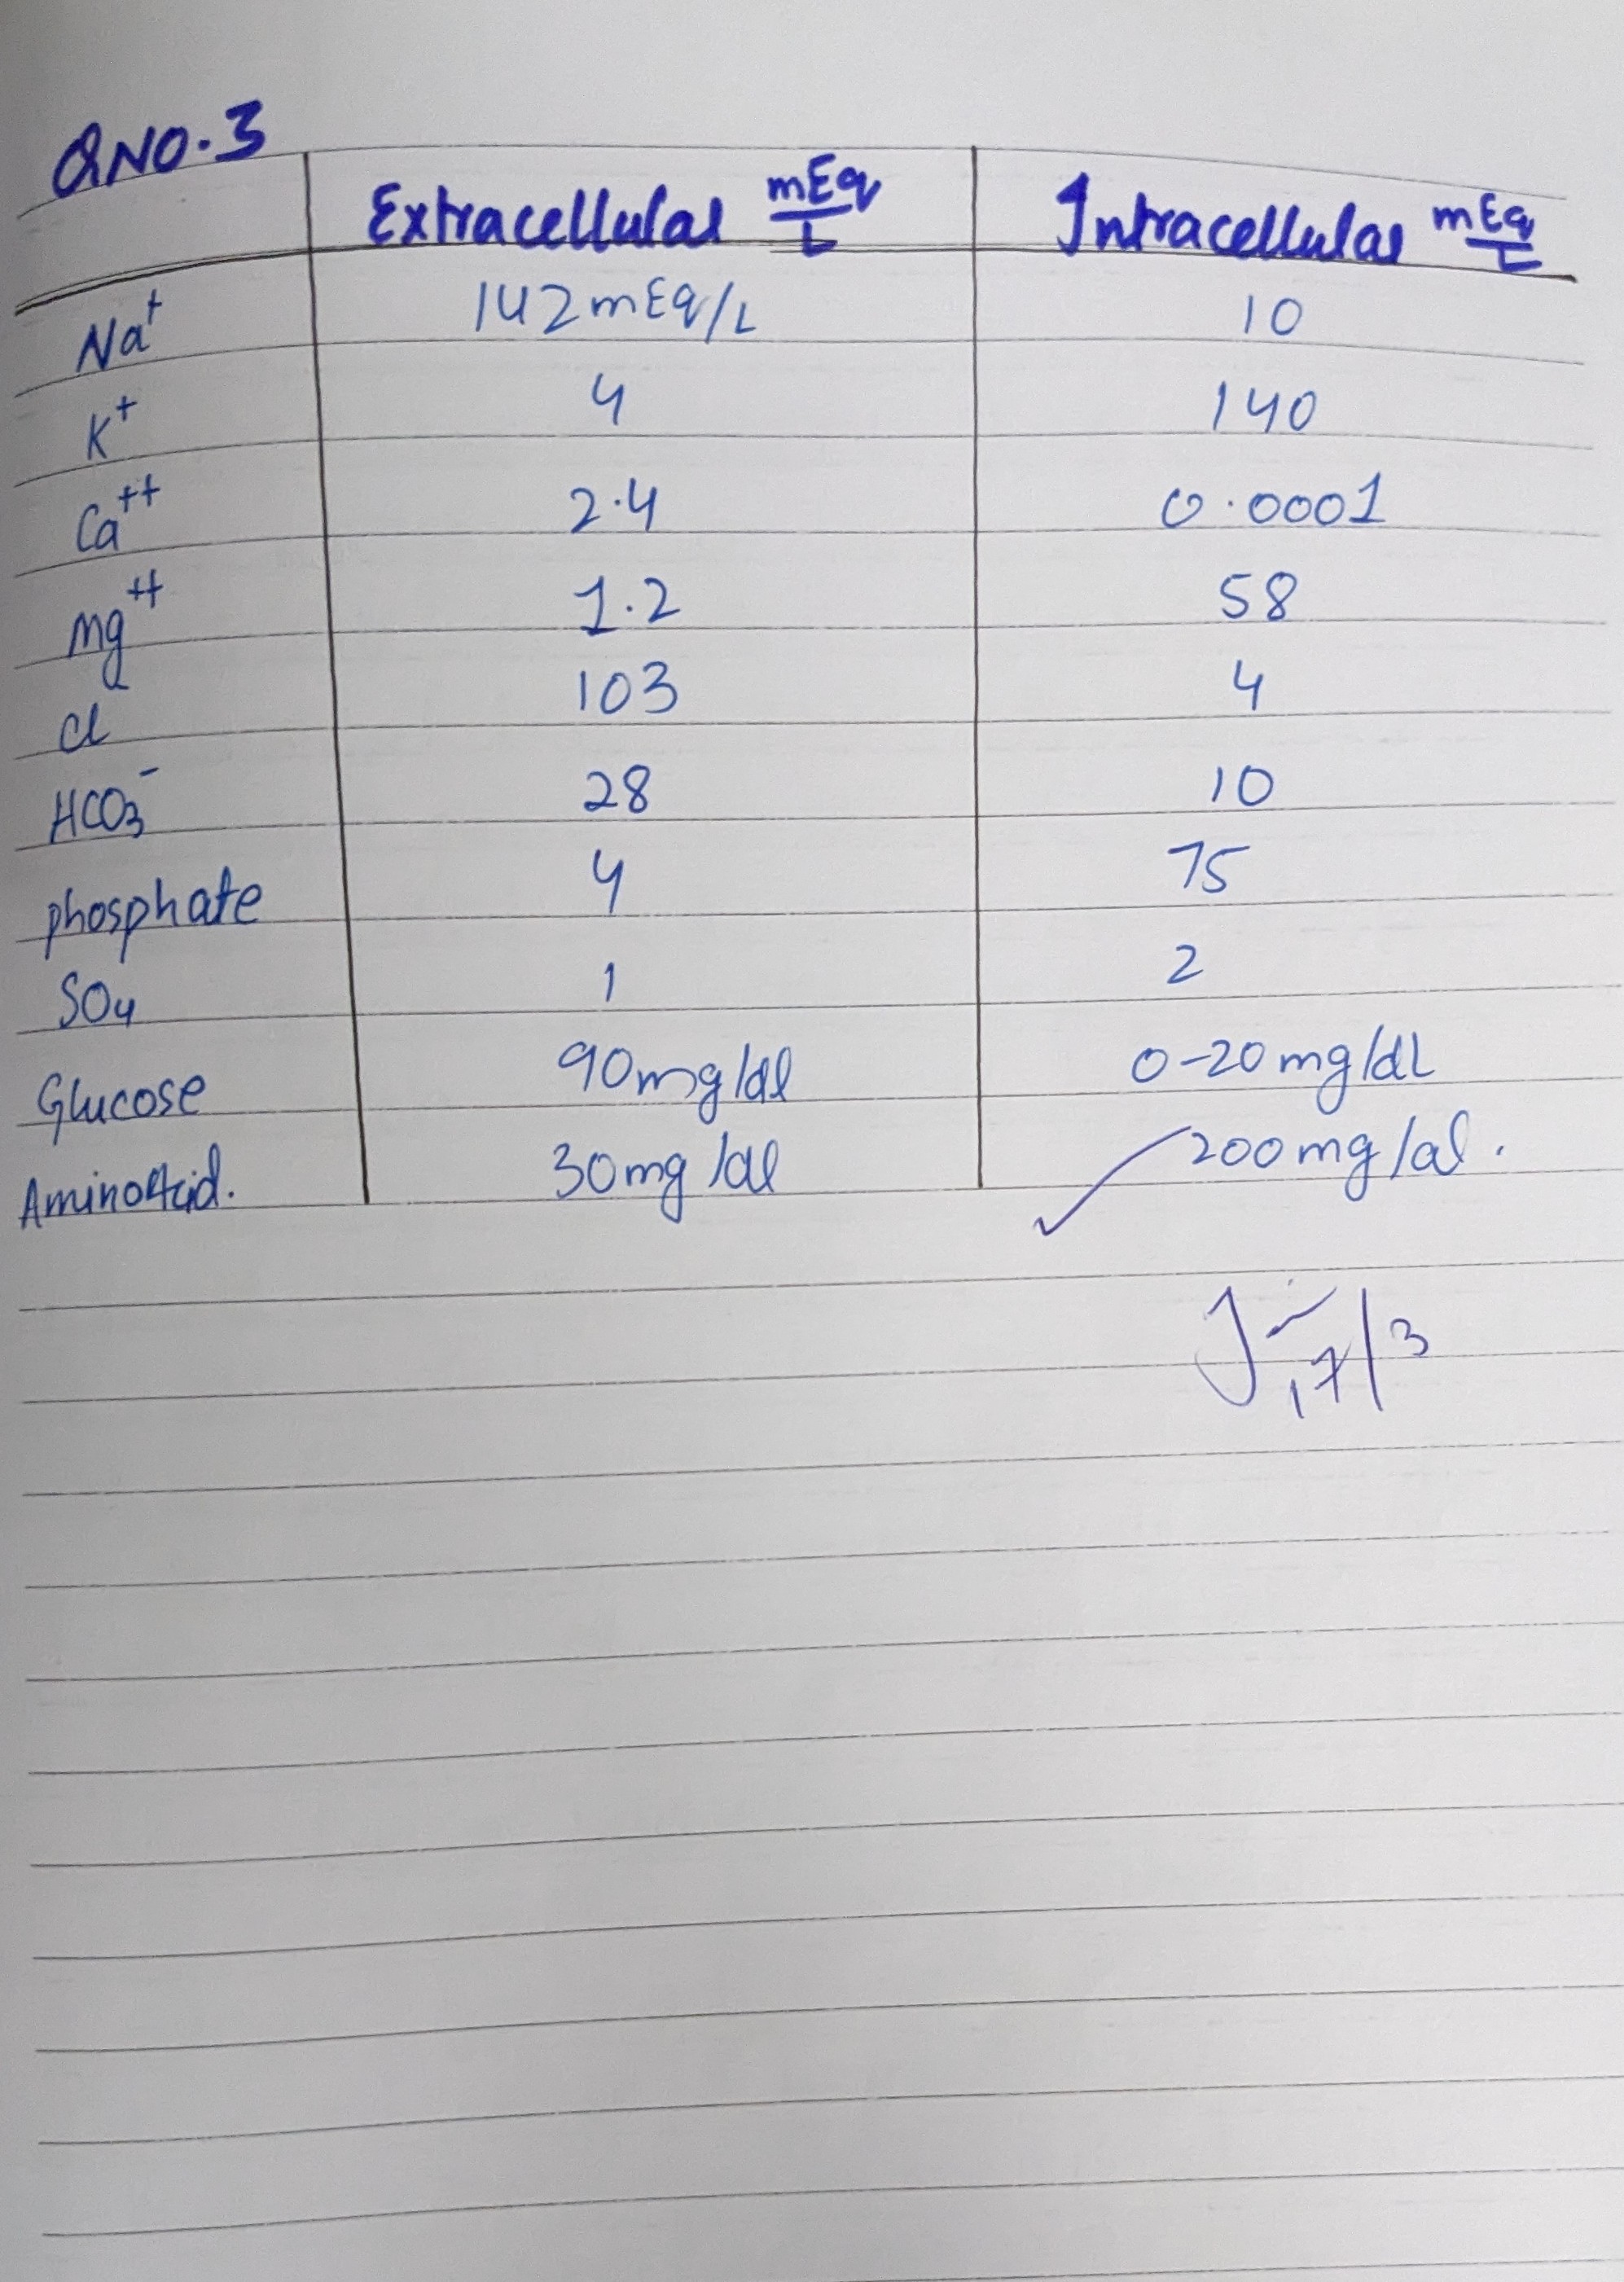 QNO.3
Extracellular mEq/L Intracellular mEq/L
Na+ 142mEq/L 10
K+ 4 140
Ca++ 2.4 0.0001
Mg++ 1.2 58
Cl 103 4
HCO3- 28 10
phosphate 4 75
SO4 1 2
Glucose 90mg/dl 0-20mg/dL
AminoAcid. 30mg/dl 200mg/dl.
17/3